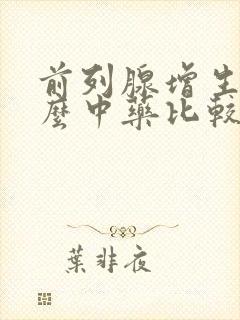 前列腺增生
麽中藥比較
葉非夜